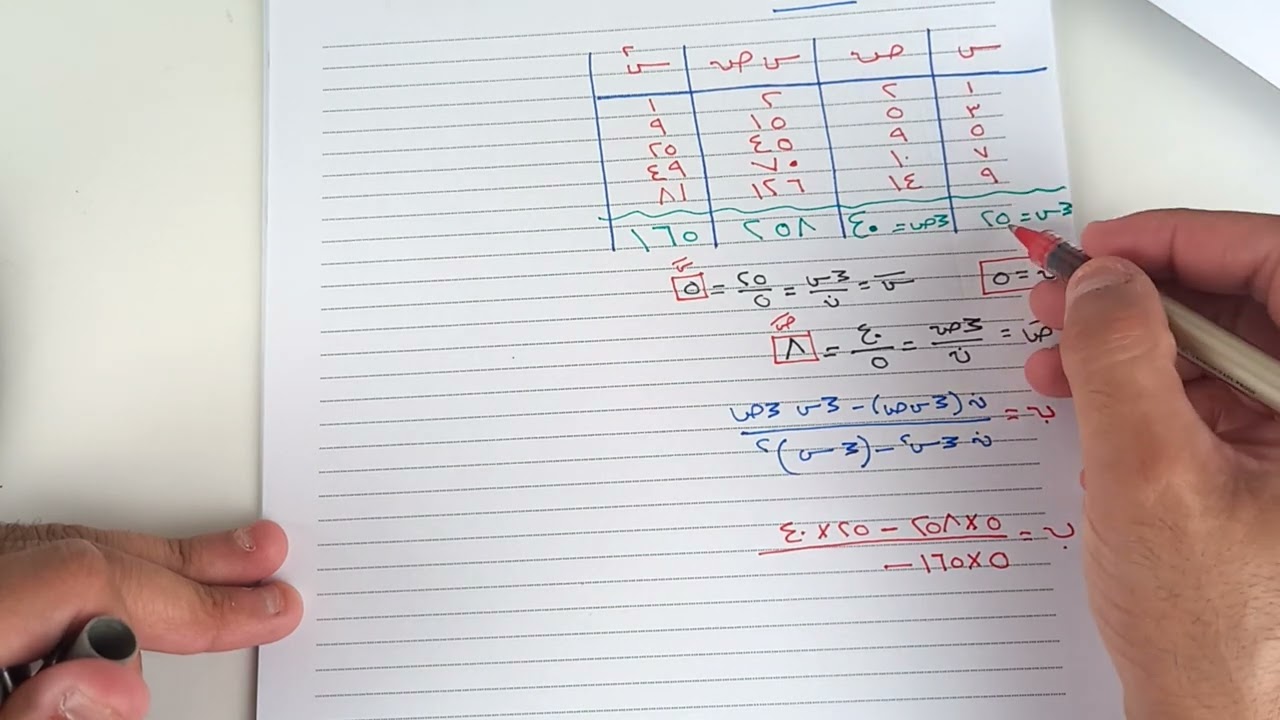 س ص س ص س٢
١ ٢ ٢ ١
٣ ٥ ١٥ ٩
٥ ٩ ٤٥ ٢٥
٧ ١٠ ٧٠ ٤٩
٩ ١٤ ١٢٦ ٨١
مجـ س = ٢٥ مجـ ص = ٤٠ ٢٥٨ ١٦٥
ن = ٥ س̄ = مجـ س / ن = ٢٥ / ٥ = ٥ س̄
ص̄ = مجـ ص / ن = ٤٠ / ٥ = ٨ ص̄
ب = ن (مجـ س ص) − مجـ س مجـ ص / ن مجـ س٢ − (مجـ س)٢
ب = ٥ × ٢٥٨ − ٢٥ × ٤٠ / ٥ × ١٦٥ −